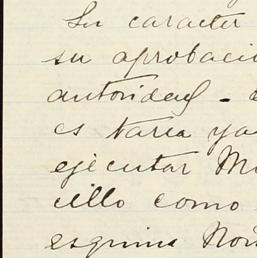 Su caracter
su aprobaci
autoridad -
es varia ya
ejecutar M
cillo como
esquina Nor